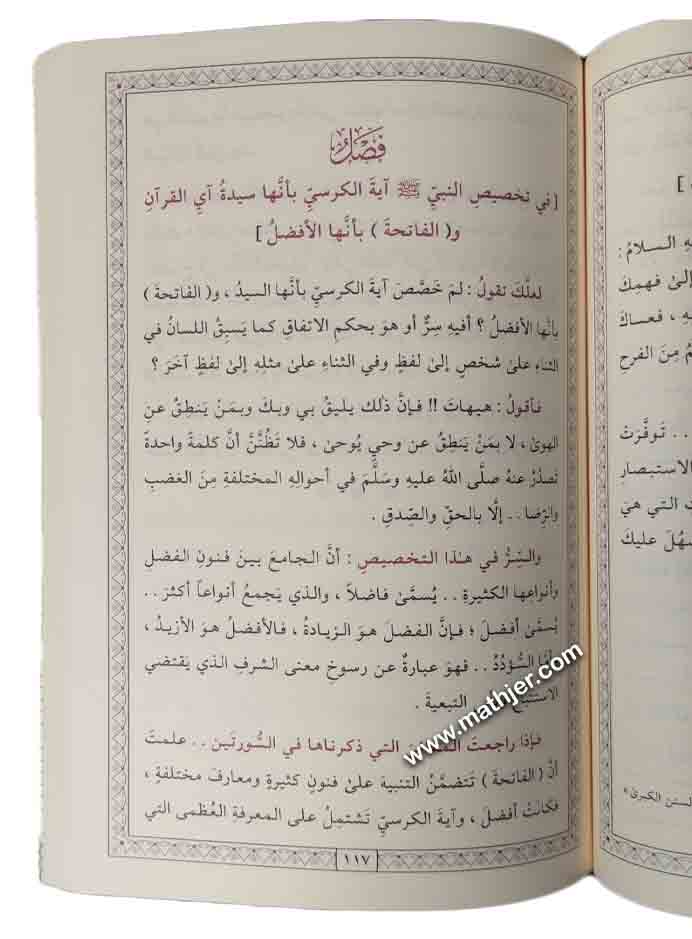 فَصْلٌ
[ في تخصيصِ النبيِّ ﷺ آيةَ الكرسيِّ بأنَّها سيدةُ آيِ القرآنِ
و( الفاتحةَ ) بأنَّها الأفضلُ ]
لعلَّكَ تقولُ : لمَ خَصَّصَ آيةَ الكرسيِّ بأنَّها السيدُ ، و( الفاتحةَ )
بأنَّها الأفضلُ ؟ أفيهِ سِرٌّ أو هوَ بحكمِ الاتفاقِ كما يَسبِقُ اللسانُ في
الثناءِ علىٰ شخصٍ إلىٰ لفظٍ وفي الثناءِ علىٰ مثلِهِ إلىٰ لفظٍ آخرَ ؟
فأقولُ : هيهاتَ !! فإنَّ ذٰلكَ يليقُ بي وبكَ وبمَنْ يَنطِقُ عنِ
الهوىٰ ، لا بمَنْ يَنطِقُ عن وحيٍ يُوحىٰ ، فلا تَظُنَّنَّ أنَّ كلمةً واحدةً
تصدُرُ عنهُ صلَّى اللهُ عليهِ وسَلَّمَ في أحوالِهِ المختلفةِ مِنَ الغضبِ
والرِّضا . . إلَّا بالحقِّ والصِّدقِ .
والسِّرُّ في هٰذا التخصيصِ : أنَّ الجامعَ بينَ فنونِ الفضلِ
وأنواعِها الكثيرةِ . . يُسمَّىٰ فاضلاً ، والذي يَجمعُ أنواعاً أكثرَ . .
يُسمَّىٰ أفضلَ ؛ فإنَّ الفضلَ هوَ الزيادةُ ، فالأفضلُ هوَ الأزيدُ ،
وأمَّا السُّؤدُدُ . . فهوَ عبارةٌ عن رسوخِ معنى الشرفِ الذي يَقتضي
التبعيةَ .
فإذا راجعتَ التي ذكرناها في السُّورتَينِ . . علمتَ
أنَّ ( الفاتحةَ ) تَتضمَّنُ التنبيهَ علىٰ فنونٍ كثيرةٍ ومعارفَ مختلفةٍ ،
فكانَتْ أفضلَ ، وآيةَ الكرسيِّ تَشتملُ على المعرفةِ العُظمى التي
١١٧
www.mathjer.com
]
ـهِ السلامُ :
إلىٰ فهمِكَ
ـهِ ، فعساكَ
مِنَ الفرحِ
. . توفَّرَتْ
الاستبصارِ
التي هيَ
عليكَ
السنن الكبرىٰ »